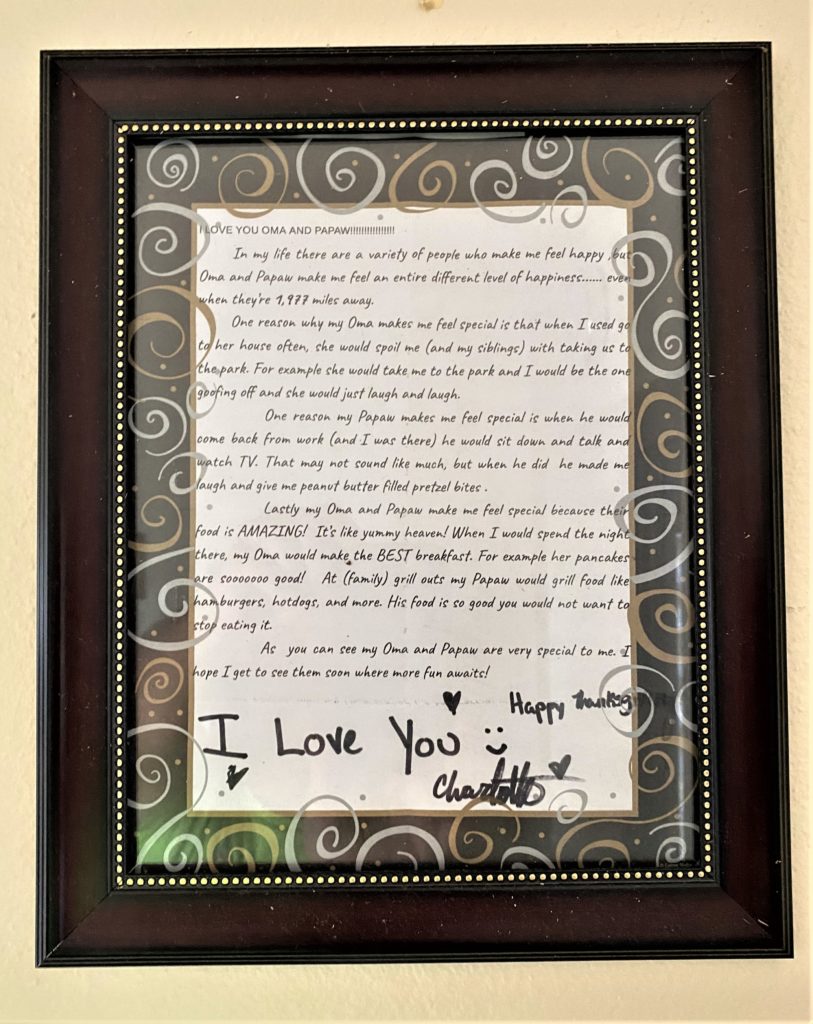 I LOVE YOU OMA AND PAPAW!!!!!!!!!!!!!!!!
In my life there are a variety of people who make me feel happy ,but
Oma and Papaw make me feel an entire different level of happiness...... even
when they're 1,977 miles away.
One reason why my Oma makes me feel special is that when I used go
to her house often, she would spoil me (and my siblings) with taking us to
the park. For example she would take me to the park and I would be the one
goofing off and she would just laugh and laugh.
One reason my Papaw makes me feel special is when he would
come back from work (and I was there) he would sit down and talk and
watch TV. That may not sound like much, but when he did he made me
laugh and give me peanut butter filled pretzel bites .
Lastly my Oma and Papaw make me feel special because their
food is AMAZING! It's like yummy heaven! When I would spend the night
there, my Oma would make the BEST breakfast. For example her pancakes
are sooooooo good! At (family) grill outs my Papaw would grill food like
hamburgers, hotdogs, and more. His food is so good you would not want to
stop eating it.
As you can see my Oma and Papaw are very special to me. I
hope I get to see them soon where more fun awaits!
Happy
I Love You
Charlotte